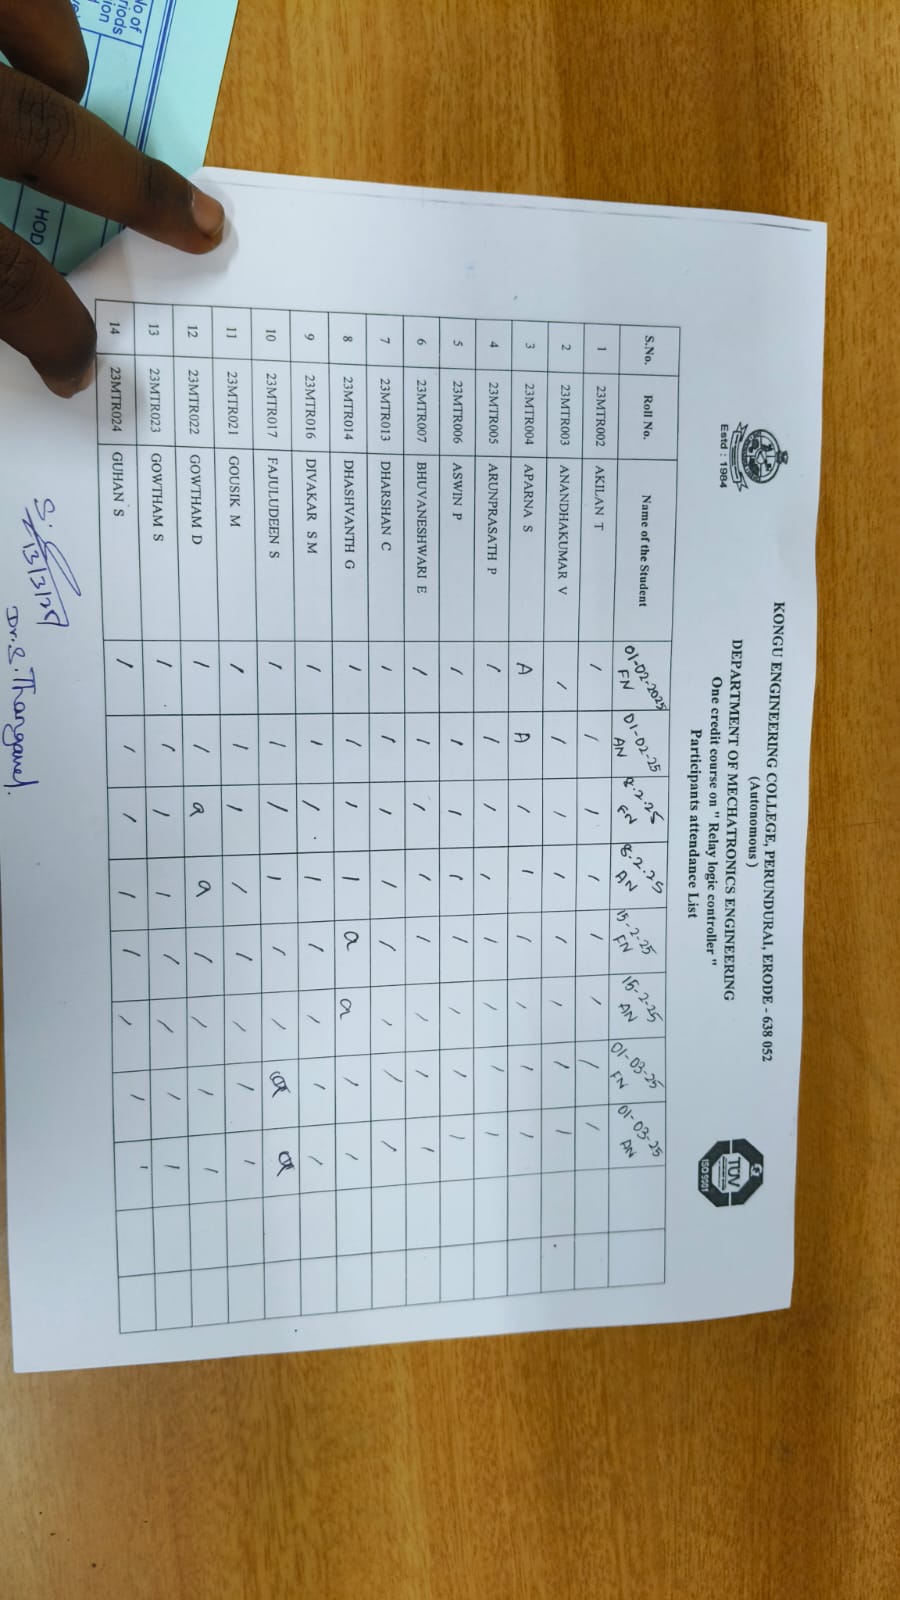 No of
riods
ion
HOD
Estd : 1984
KONGU ENGINEERING COLLEGE, PERUNDURAI, ERODE - 638 052
(Autonomous)
DEPARTMENT OF MECHATRONICS ENGINEERING
One credit course on " Relay logic controller "
Participants attendance List
TUV
ISO 9001
S.No. Roll No. Name of the Student 01-02-2025 FN 01-02-25 AN 8.2.25 FN 8.2.25 AN 15-2-25 FN 15-2-25 AN 01-03-25 FN 01-03-25 AN
1 23MTR002 AKILAN T / / / / / / / /
2 23MTR003 ANANDHAKUMAR V / / / / / / / /
3 23MTR004 APARNA S A A / / / / / /
4 23MTR005 ARUNPRASATH P / / / / / / / /
5 23MTR006 ASWIN P / / / / / / / /
6 23MTR007 BHUVANESHWARI E / / / / / / / /
7 23MTR013 DHARSHAN C / / / / / / / /
8 23MTR014 DHASHVANTH G / / / / a a / /
9 23MTR016 DIVAKAR S M / / / / / / / /
10 23MTR017 FAJULUDEEN S / / / / / / a a
11 23MTR021 GOUSIK M / / / / / / / /
12 23MTR022 GOWTHAM D / / a a / / / /
13 23MTR023 GOWTHAM S / / / / / / / /
14 23MTR024 GUHAN S / / / / / / / /
13/3/25
Dr.S.Thangavel.